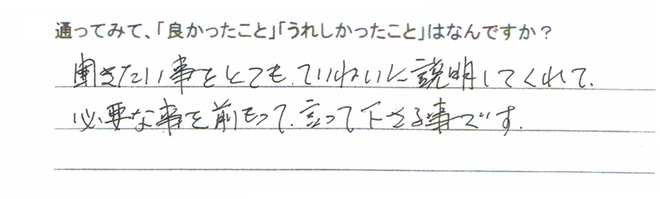 通ってみて、「良かったこと」「うれしかったこと」はなんですか？
聞きたい事をとても、ていねいに説明してくれて、
必要な事を前もって、言って下さる事です。